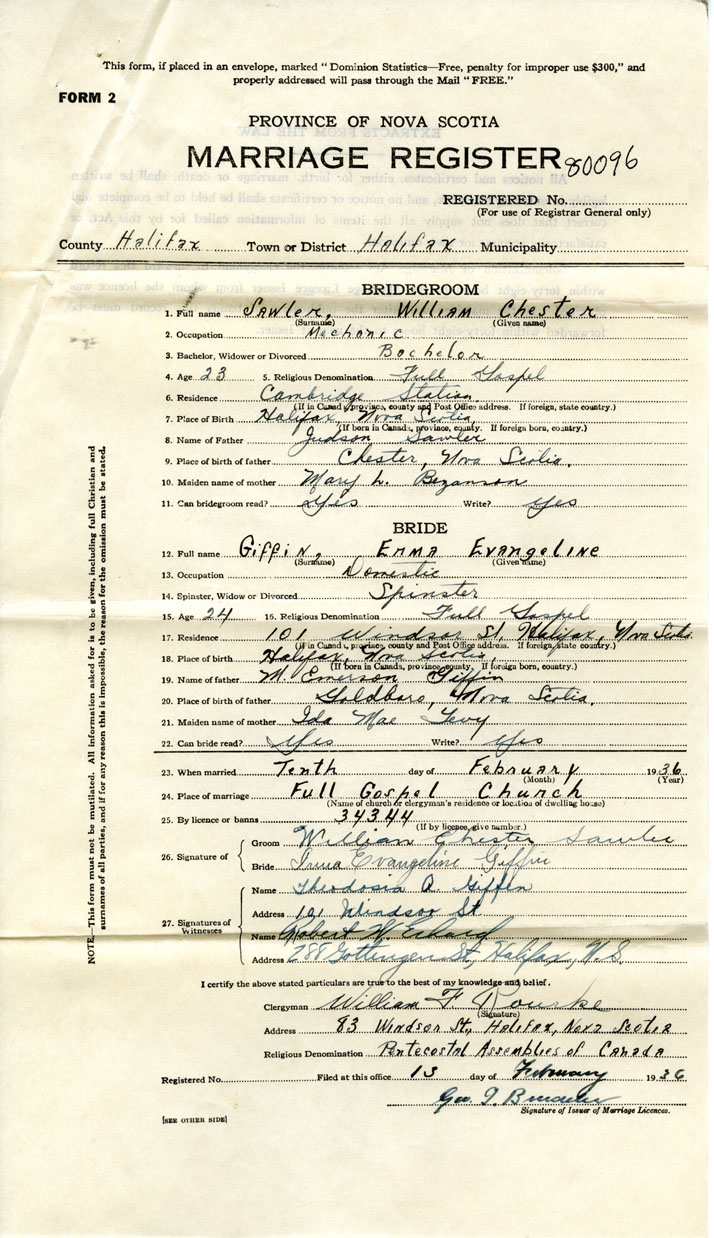 This form, if placed in an envelope, marked "Dominion Statistics—Free, penalty for improper use $300," and
properly addressed will pass through the Mail "FREE."
FORM 2
PROVINCE OF NOVA SCOTIA
MARRIAGE REGISTER 80096
REGISTERED No.
(For use of Registrar General only)
County Halifax Town or District Halifax Municipality
BRIDEGROOM
1. Full name Sawler, William Chester
(Surname) (Given name)
2. Occupation Mechanic
3. Bachelor, Widower or Divorced Bachelor
4. Age 23 5. Religious Denomination Full Gospel
6. Residence Cambridge Station.
(If in Canada, province, county and Post Office address. If foreign, state country.)
7. Place of Birth Halifax, Nova Scotia.
(If born in Canada, province, county. If foreign born, country.)
8. Name of Father Judson Sawler
9. Place of birth of father Chester, Nova Scotia.
10. Maiden name of mother Mary L. Bezanson
11. Can bridegroom read? Yes Write? Yes
BRIDE
12. Full name Giffin, Emma Evangeline
(Surname) (Given name)
13. Occupation Domestic
14. Spinster, Widow or Divorced Spinster
15. Age 24 16. Religious Denomination Full Gospel
17. Residence 101 Windsor St. Halifax, Nova Scotia.
(If in Canada, province, county and Post Office address. If foreign, state country.)
18. Place of birth Halifax, Nova Scotia,
(If born in Canada, province, county. If foreign born, country.)
19. Name of father M. Emerson Giffin
20. Place of birth of father Goldboro, Nova Scotia.
21. Maiden name of mother Ida Mae Levy
22. Can bride read? Yes Write? Yes
23. When married Tenth day of February 1936
(Month) (Year)
24. Place of marriage Full Gospel Church
(Name of church or clergyman's residence or location of dwelling house)
25. By licence or banns 34344
(If by licence, give number.)
26. Signature of Groom William Chester Sawler
Bride Evangeline Giffin
27. Signatures of Witnesses
Name Theodosia A. Giffin
Address 101 Windsor St
Name Robert W.
Address 288 Gottingen St, Halifax, N.S.
I certify the above stated particulars are true to the best of my knowledge and belief.
Clergyman William F Rourke
(Signature)
Address 83 Windsor St, Halifax, Nova Scotia
Religious Denomination Pentecostal Assemblies of Canada
Registered No. Filed at this office 13 day of February 1936
Geo.
Signature of Issuer of Marriage Licences.
[SEE OTHER SIDE]
NOTE.—This form must not be mutilated. All information asked for is to be given, including full Christian and
surnames of all parties, and if for any reason this is impossible, the reason for the omission must be stated.